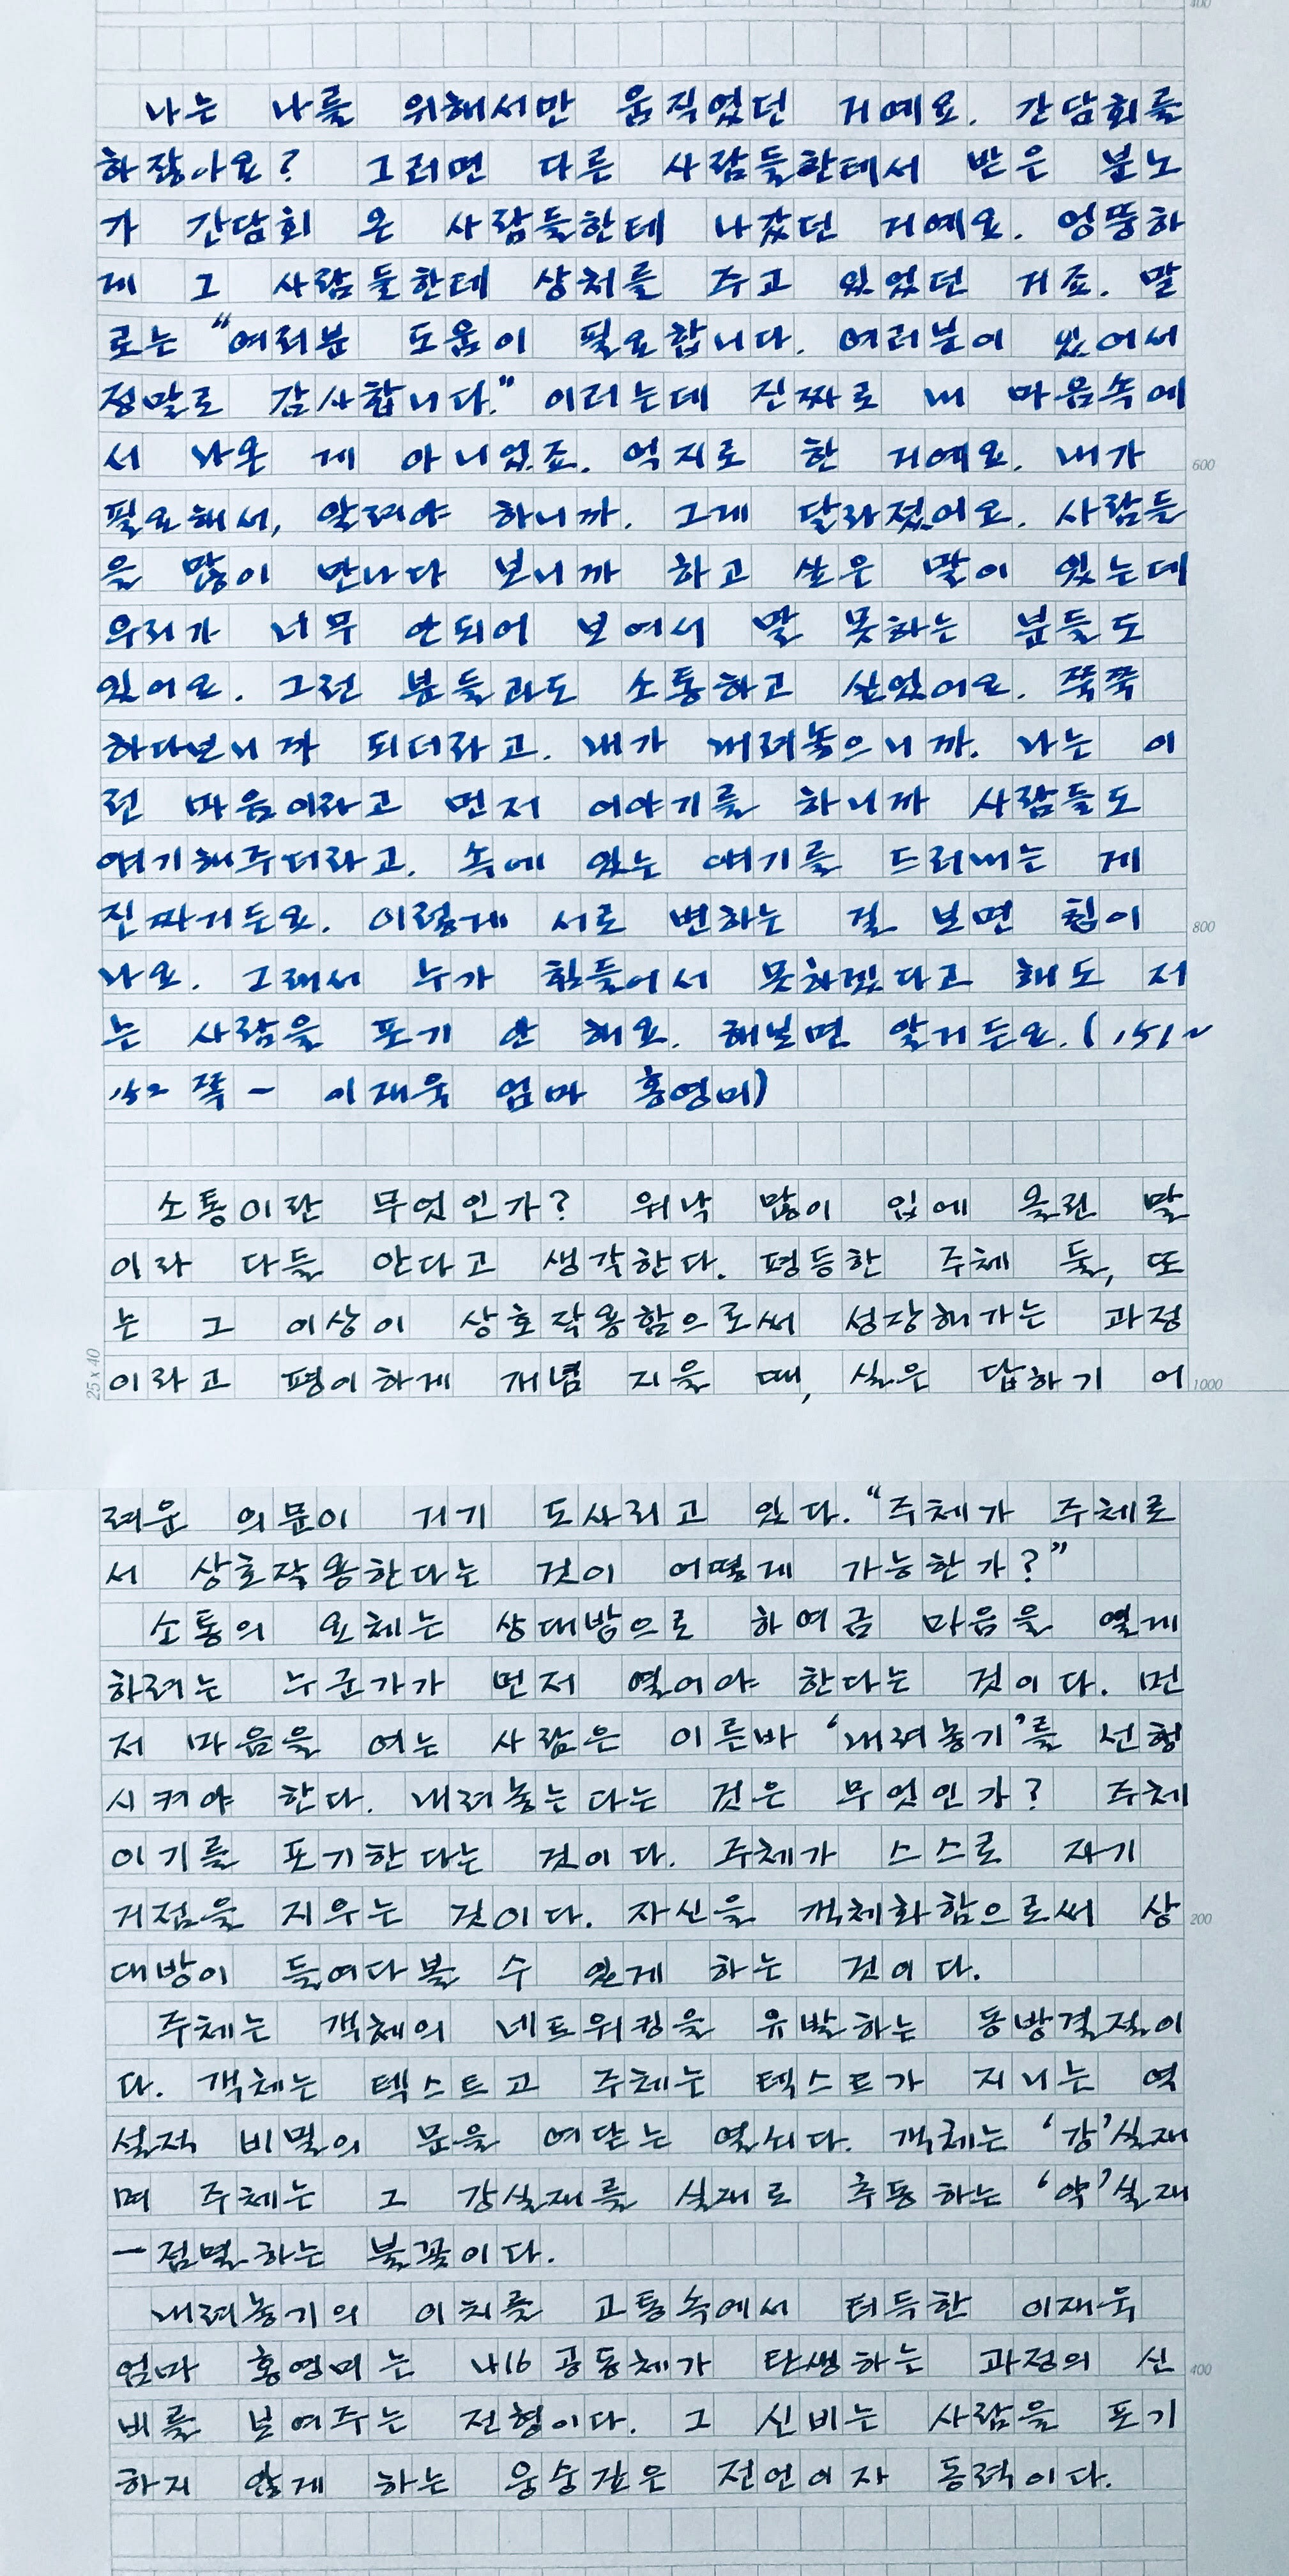 400
나는 나를 위해서만 움직였던 거예요. 간담회를
하잖아요? 그러면 다른 사람들한테서 받은 분노
가 간담회 온 사람들한테 나갔던 거예요. 엉뚱하
게 그 사람들한테 상처를 주고 있었던 거죠. 말
로는 “여러분 도움이 필요합니다. 여러분이 있어서
정말로 감사합니다.” 이러는데 진짜로 내 마음속에
서 나온 게 아니었죠. 억지로 한 거예요. 내가 600
필요해서, 알려야 하니까. 그게 달라졌어요. 사람들
을 많이 만나다 보니까 하고 싶은 말이 있는데
우리가 너무 안되어 보여서 말 못하는 분들도
있어요. 그런 분들과도 소통하고 싶었어요. 쭉쭉
하다보니까 되더라고. 내가 내려놓으니까. 나는 이
런 마음이라고 먼저 이야기를 하니까 사람들도
얘기해주더라고. 속에 있는 얘기를 드러내는 게
진짜거든요. 이렇게 서로 변하는 걸 보면 힘이 800
나요. 그래서 누가 힘들어서 못하겠다고 해도 저
는 사람을 포기 안 해요. 해보면 알거든요. (151~
152 쪽 - 이재욱 엄마 홍영미)
소통이란 무엇인가? 워낙 많이 입에 올린 말
이라 다들 안다고 생각한다. 평등한 주체 둘, 또
는 그 이상이 상호작용함으로써 성장해가는 과정
이라고 평이하게 개념 지을 때, 실은 답하기 어 1000
25 x 40
려운 의문이 거기 도사리고 있다. “주체가 주체로
서 상호작용한다는 것이 어떻게 가능한가?”
소통의 요체는 상대방으로 하여금 마음을 열게
하려는 누군가가 먼저 열어야 한다는 것이다. 먼
저 마음을 여는 사람은 이른바 ‘내려놓기’를 선행
시켜야 한다. 내려놓는다는 것은 무엇인가? 주체
이기를 포기한다는 것이다. 주체가 스스로 자기
거점을 지우는 것이다. 자신을 객체화함으로써 상 200
대방이 들여다볼 수 있게 하는 것이다.
주체는 객체의 네트워킹을 유발하는 동방결절이
다. 객체는 텍스트고 주체는 텍스트가 지니는 역
설적 비밀의 문을 여닫는 열쇠다. 객체는 ‘강’실재
며 주체는 그 강실재를 실재로 추동하는 ‘약’실재
—점멸하는 불꽃이다.
내려놓기의 이치를 고통속에서 터득한 이재욱
엄마 홍영미는 416 공동체가 탄생하는 과정의 신 400
비를 보여주는 전형이다. 그 신비는 사람을 포기
하지 않게 하는 웅숭깊은 전언이자 동력이다.